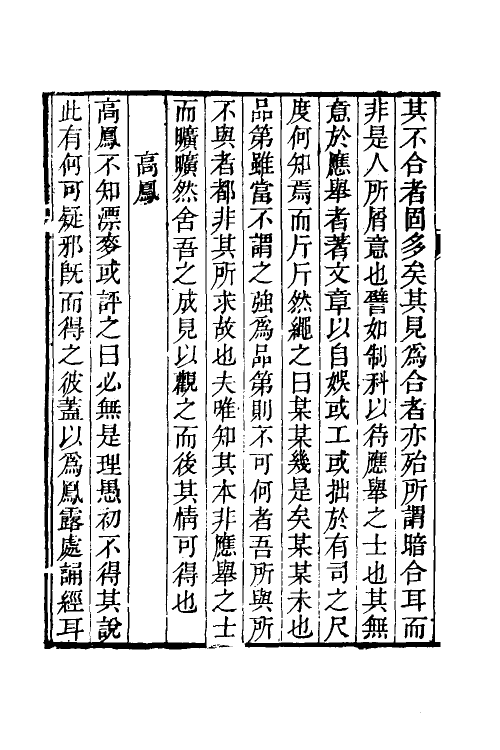 其不合者固多矣其見爲合者亦殆所謂暗合耳而
非是人所屑意也譬如制科以待應舉之士也其無
意於應舉者著文章以自娛或工或拙於有司之尺
度何知焉而斤斤然繩之曰某某幾是矣某某未也
品第雖當不謂之强爲品第則不可何者吾所與所
不與者都非其所求故也夫唯知其本非應舉之士
而曠曠然舍吾之成見以觀之而後其情可得也
高鳳
高鳳不知漂麥或評之曰必無是理愚初不得其說
此有何可疑邪旣而得之彼蓋以爲鳳露處誦經耳